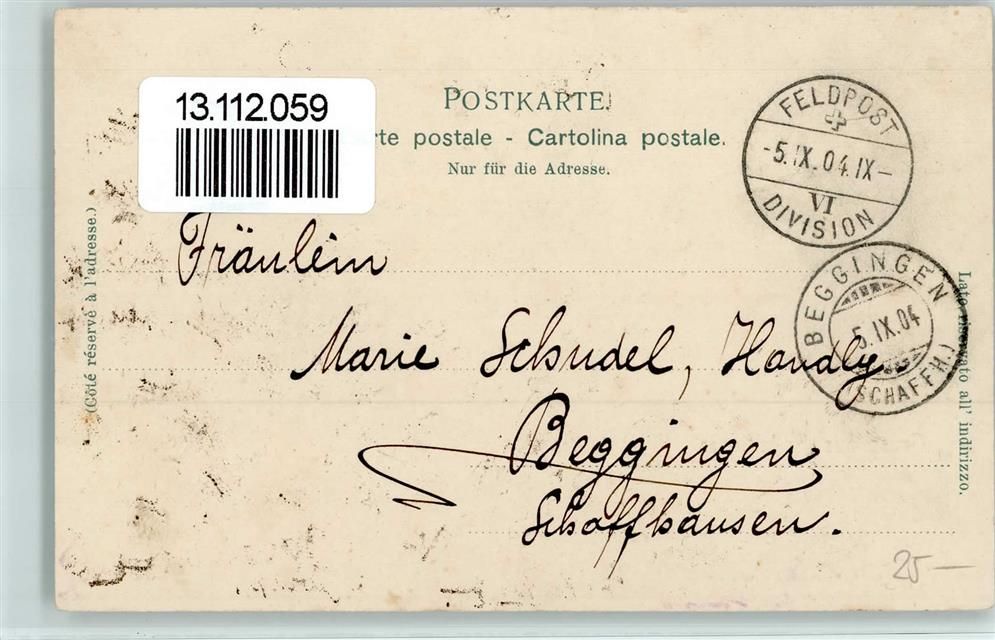 13.112.059
POSTKARTE.
rte postale - Cartolina postale.
Nur für die Adresse.
FELDPOST
-5.IX.04.IX-
VI
DIVISION
(Côté réservé à l'adresse.)
Fräulein
BEGGINGEN
5.IX.04
(SCHAFFH.)
Lato riservato all' indirizzo.
Marie Schudel, Handlg.
Beggingen
Schaffhausen.
25 —